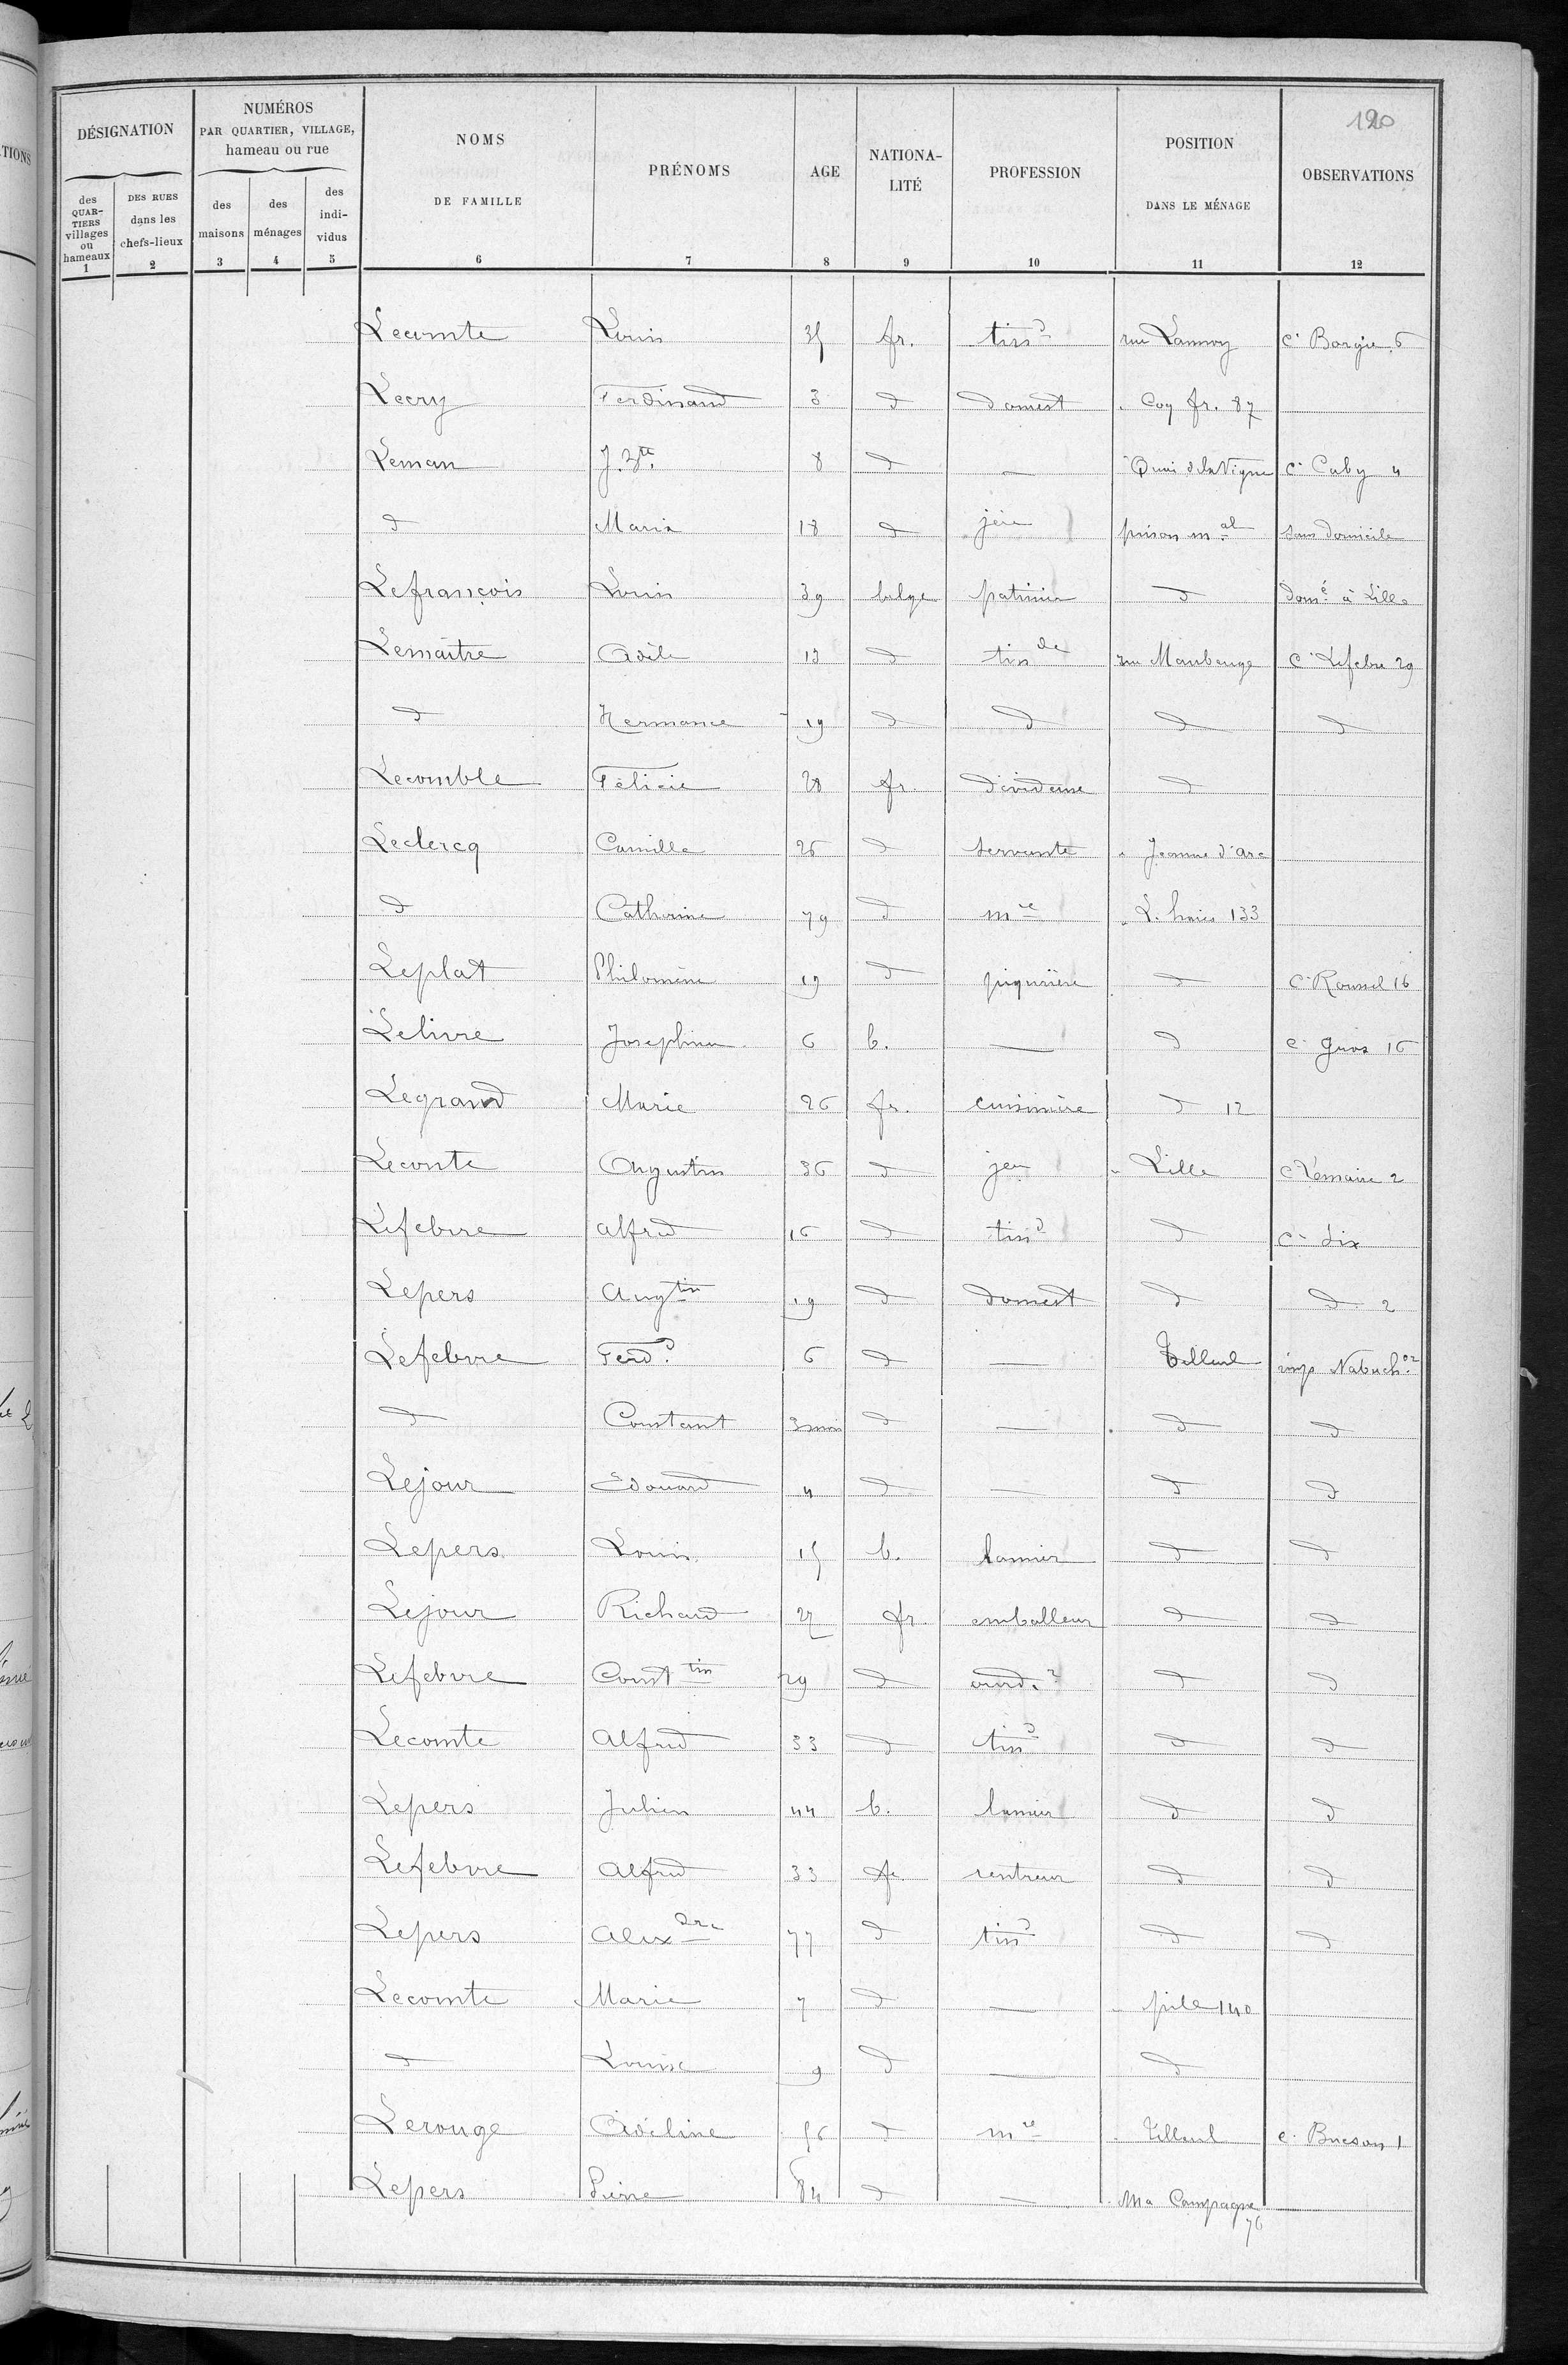 120
DÉSIGNATION
NUMÉROS
PAR QUARTIER, VILLAGE,
hameau ou rue
NOMS
DE FAMILLE
PRÉNOMS
AGE
NATIONA-
LITÉ
PROFESSION
POSITION
DANS LE MÉNAGE
OBSERVATIONS
des
QUAR-
TIERS
villages
ou
hameaux
DES RUES
dans les
chefs-lieux
des
maisons
des
ménages
des
indi-
vidus
1 2 3 4 5 6 7 8 9 10 11 12
Lecomte Louis 35 fr. tisd rue Lannoy cr Borgie 6
Lecry Ferdinand 3 d domest Coq fr. 87
Leman J. Bte 8 d — Quai de la Vigne cr Caby 4
d Maria 18 d jère prison mal sans domicile
Lefrançois Louis 39 belge d domé à Lille
Lemaitre Adèle 13 d tisde rue Maubeuge cr Lefebre 29
d Hermance 19 d d d d
Lecomble Félicie 28 fr. dévideuse d
Leclercq Camille 26 d servante Jeanne d'arc
d Catherine 79 d mre L. haies 133
Leplat Philomène 19 d piqurière d cr Roussel 16
Lelivre Josephine 6 b. — d c. Gros 16
Legrand Marie 26 fr. cuisinière d 12
Leconte Augustin 36 d jer Lille c Lemaire 2
Lefebvre alfred 16 d tisd d cr dix
Lepers Augtin 19 d domest d d 2
Lefebvre Ferd. 6 d — Tilleul imp Nabuchor
d Constant 3 mois d — d d
Lejour Edouard 4 d — d d
Lepers Louis 15 b. lamier d d
Lejour Richard 27 fr. emballeur d d
Lefebvre Consttin 29 d ourd.r d d
Lecomte Alfred 33 d tisd d d
Lepers Julien 44 b. lamier d d
Lefebvre Alfred 33 fr rentreur d d
Lepers Alexdre 77 d tisd d d
Lecomte Marie 7 d — pile 140
d Louise 9 d — d
Lerouge Adéline 56 d mre Tilleul c. Buisson 1
Lepers Pierre 84 d — Ma Campagne
76